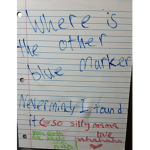 Where is
the other
blue marker
Nevermind, I found
it so silly mama
love